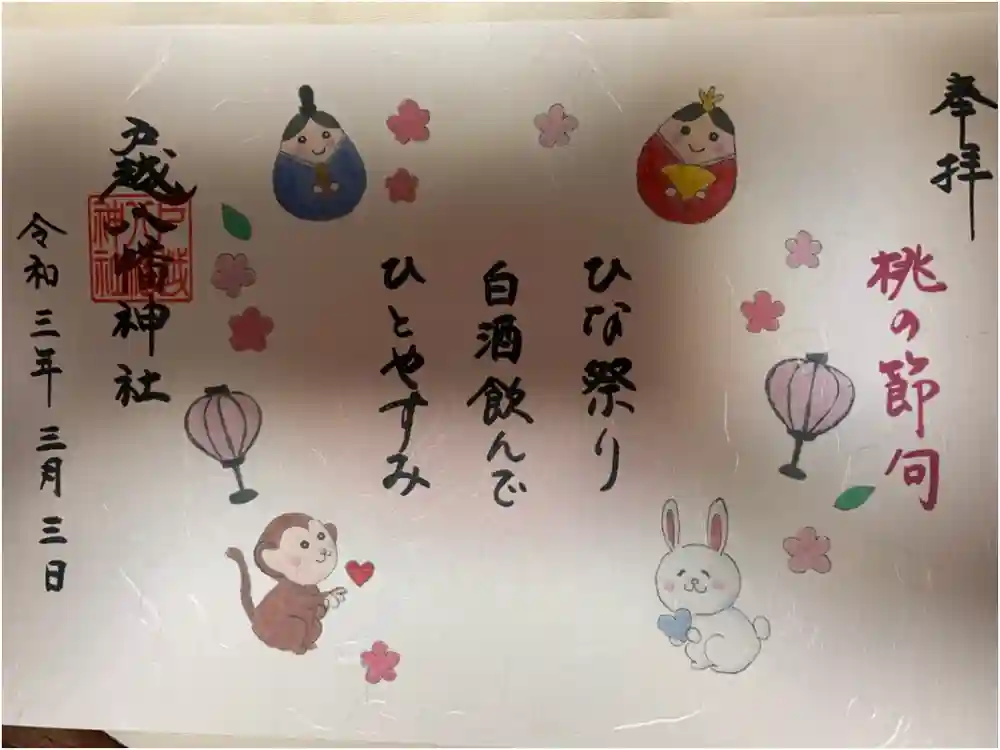 奉拝
桃の節句
ひな祭り
白酒飲んで
ひとやすみ
戸越八幡神社
戸越八幡神社
令和三年三月三日